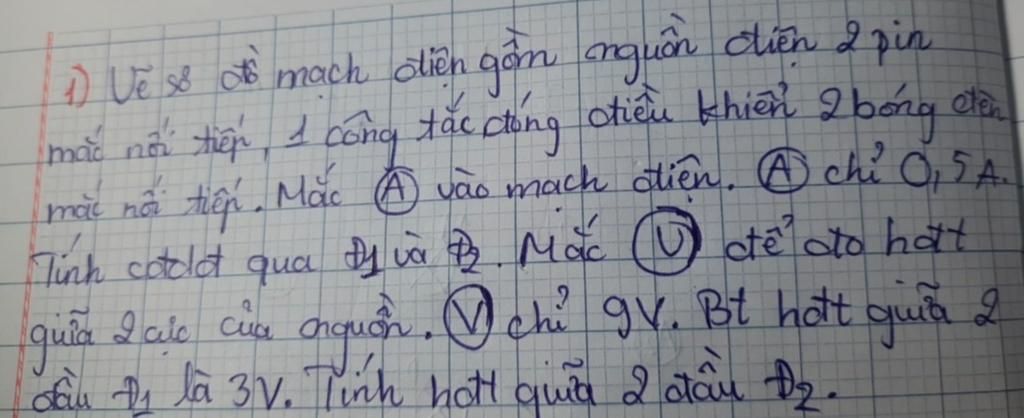 1) Vẽ sơ đồ mạch điện gồm nguồn điện 2 pin
mắc nối tiếp, 1 công tắc đóng điều khiển 2 bóng đèn
mắc nối tiếp. Mắc Ⓐ vào mạch điện. Ⓐ chỉ 0,5A.
Tính cđdđ qua Đ1 và Đ2. Mắc Ⓥ để đo hđt
giữa 2 cực của nguồn. Ⓥ chỉ 9V. Bt hđt giữa 2
đầu Đ1 là 3V. Tính hđt giữa 2 đầu Đ2.